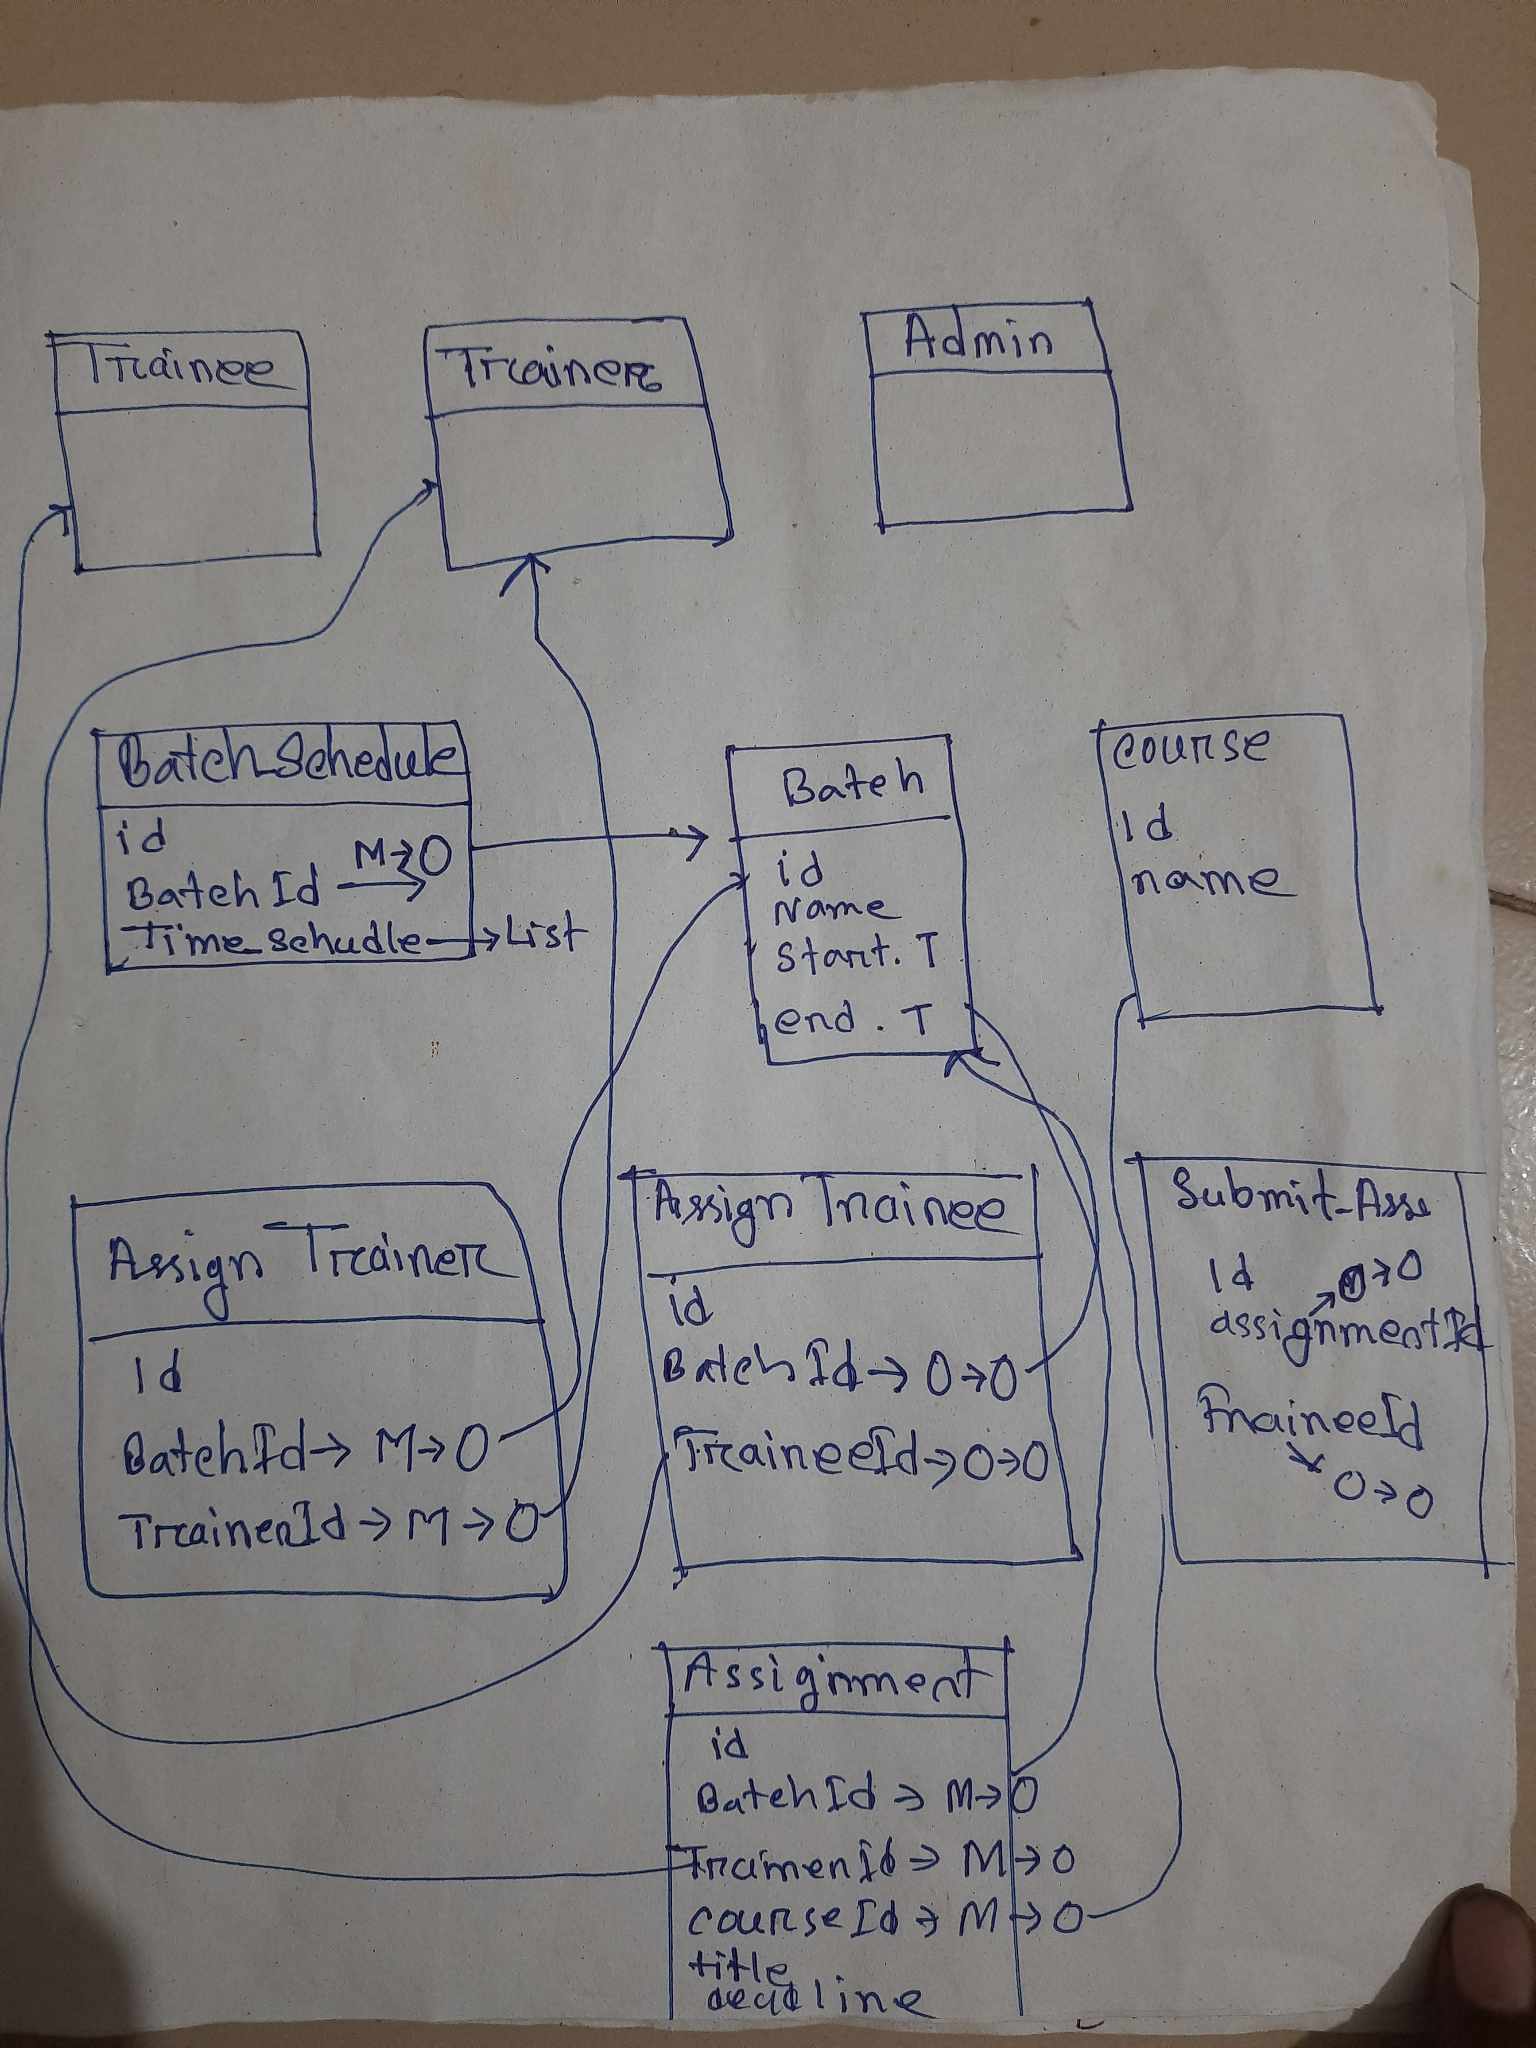 Trainee
Trainer
Admin
Batch_Schedule
id
BatchId M→O
Time_Schudle → List
Batch
id
Name
Start. T
end. T
course
Id
name
Assign Trainer
Id
BatchId → M→O
TrainerId → M→O
Assign Trainee
id
BatchId → O→O
TraineeId → O→O
Submit_Ass
Id O→O
assignmentId
TraineeId
O→O
Assignment
id
BatchId → M→O
TrainerId → M→O
courseId → M→O
title
deadline